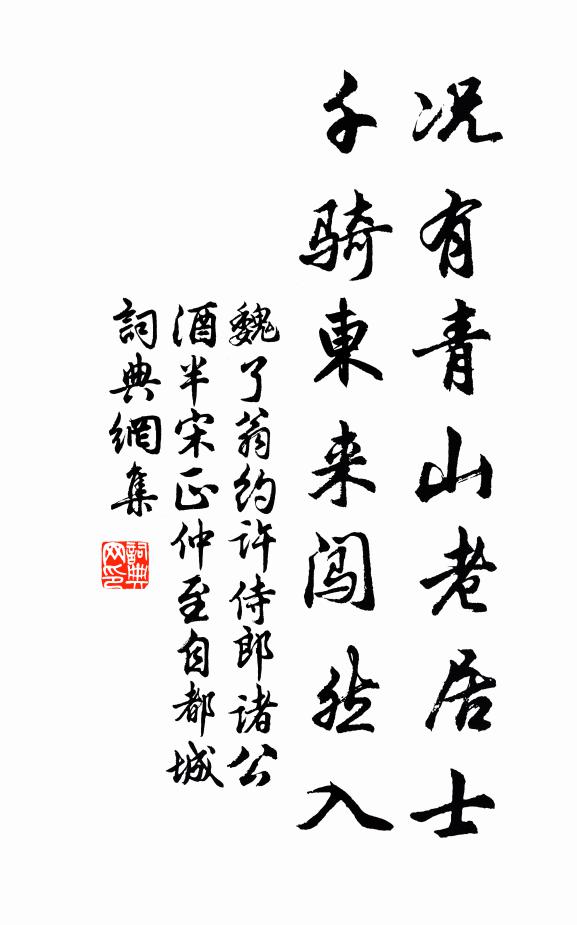 况有青山老居士
千骑東来闯然入
魏了翁约许侍郎诸公
酒半宋正仲至自都城
詞典網集
詞典
网印